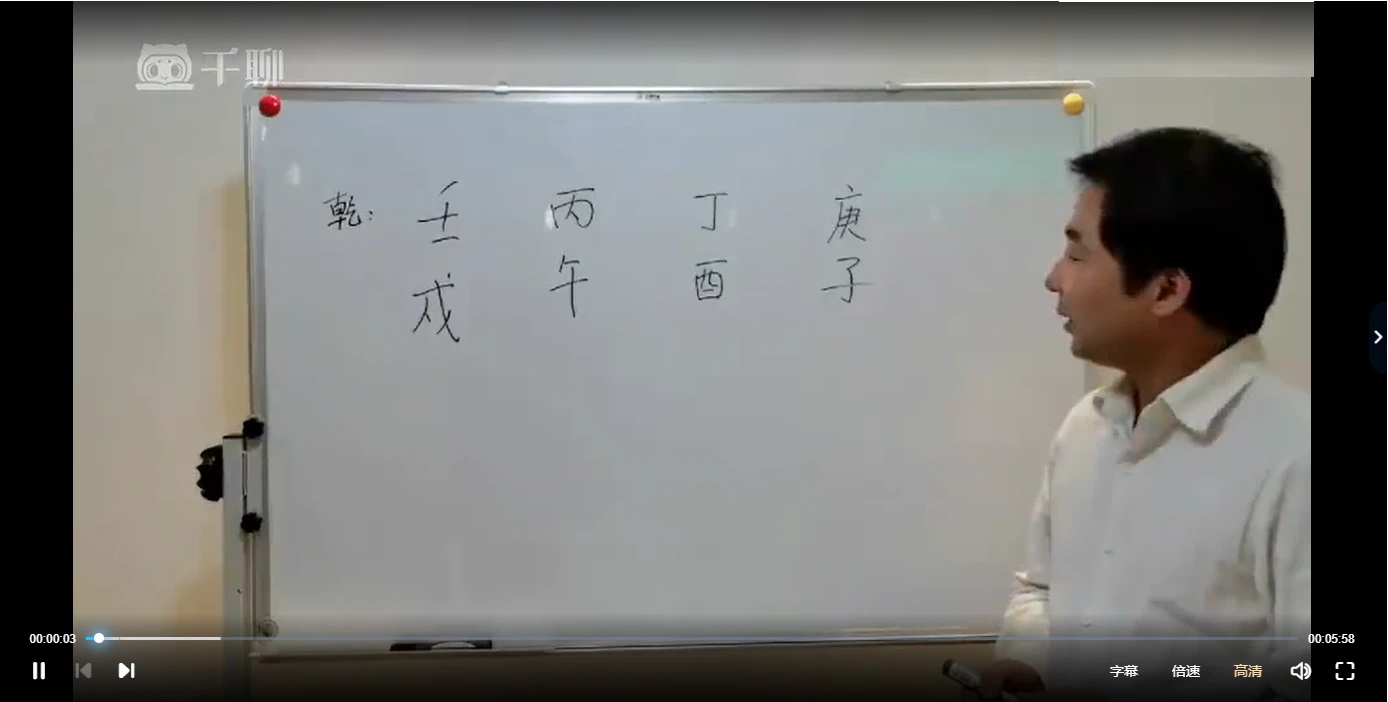 千聊
乾: 壬 丙 丁 庚
戌 午 酉 子
00:00:03
00:05:58
字幕 倍速 高清